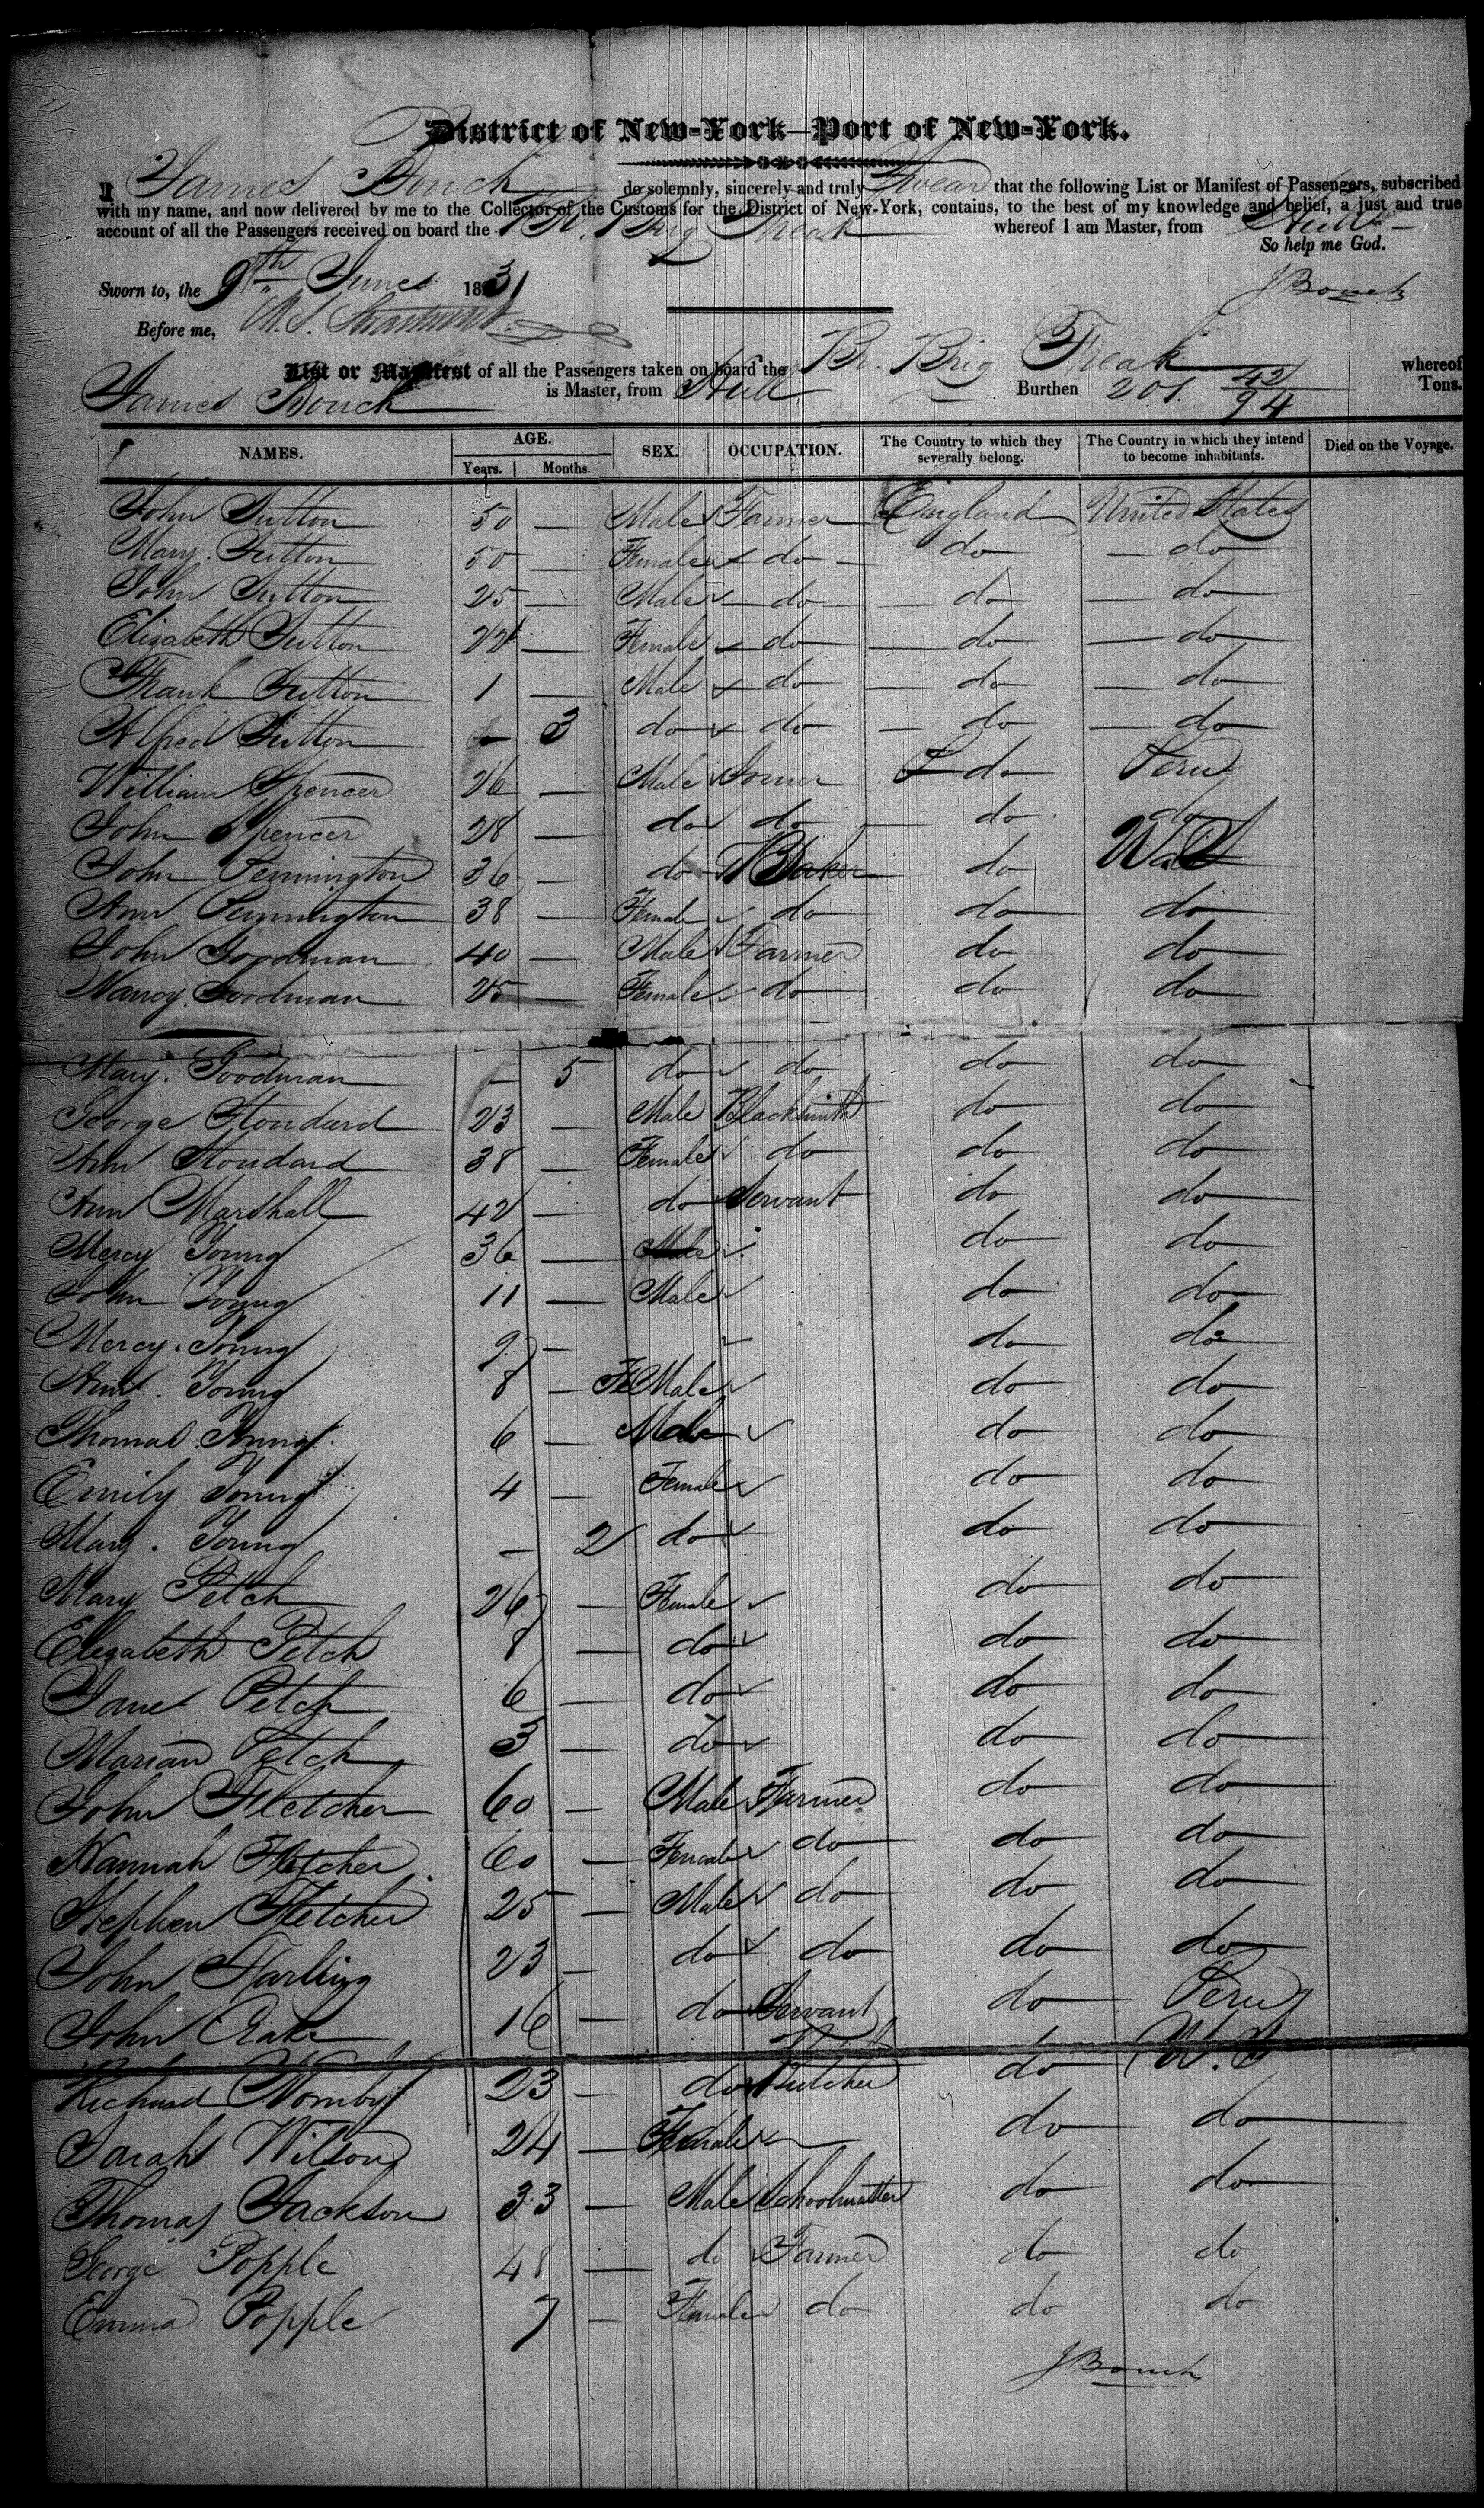 District of New-York—Port of New-York.
I James Bouch do solemnly, sincerely and truly Swear that the following List or Manifest of Passengers, subscribed
with my name, and now delivered by me to the Collector of the Customs for the District of New-York, contains, to the best of my knowledge and belief, a just and true
account of all the Passengers received on board the Br. Brig Freak whereof I am Master, from Hull
So help me God.
Sworn to, the 9th June 1831 J Bouch
Before me,
List or Manifest of all the Passengers taken on board the Br. Brig Freak whereof
James Bouch is Master, from Hull Burthen 201. 42/94 Tons.
NAMES. AGE. SEX. OCCUPATION. The Country to which they severally belong. The Country in which they intend to become inhabitants. Died on the Voyage.
Years. Months
John Sutton 50 — Male Farmer England United States
Mary Sutton 50 — Female do do do
John Sutton 25 — Male do do do
Elizabeth Sutton 22 — Female do do do
Frank Sutton 1 — Male do do do
Alfred Sutton — 3 do do do do
William Spencer 26 — Male Joiner do Peru
John Spencer 28 — do do do do
John Pennington 36 — do do
Ann Pennington 38 — Female do do do
John Goodman 40 — Male Farmer do do
Nancy Goodman 25 — Female do do do
Mary Goodman — 5 do do do do
George Stondard 23 — Male Blacksmith do do
Ann Stondard 38 — Female do do do
Ann Marshall 42 — do Servant do do
Mercy Young 36 — Male do do
John Young 11 — Male do do
Mercy Young 9 — do do
Ann Young 8 — FeMale do do
Thomas Young 6 — Male do do
Emily Young 4 — Female do do
Mary Young — 2 do do do
Mary Petch 26 — Female do do
Elizabeth Petch 8 — do do do
Jane Petch 6 — do do do
Marian Petch 3 — do do do
John Fletcher 60 — Male Farmer do do
Hannah Fletcher 60 — Female do do do
Stephen Fletcher 25 — Male do do do
John Harling 23 — do do do do
John 16 — do Servant do Peru
Richard Hornby 23 — do Butcher do
Sarah Wilson 24 — Female — do do
Thomas Jackson 33 — Male Schoolmaster do do
George Popple 48 — do Farmer do do
Emma Popple 7 — Female do do do
J Bouch